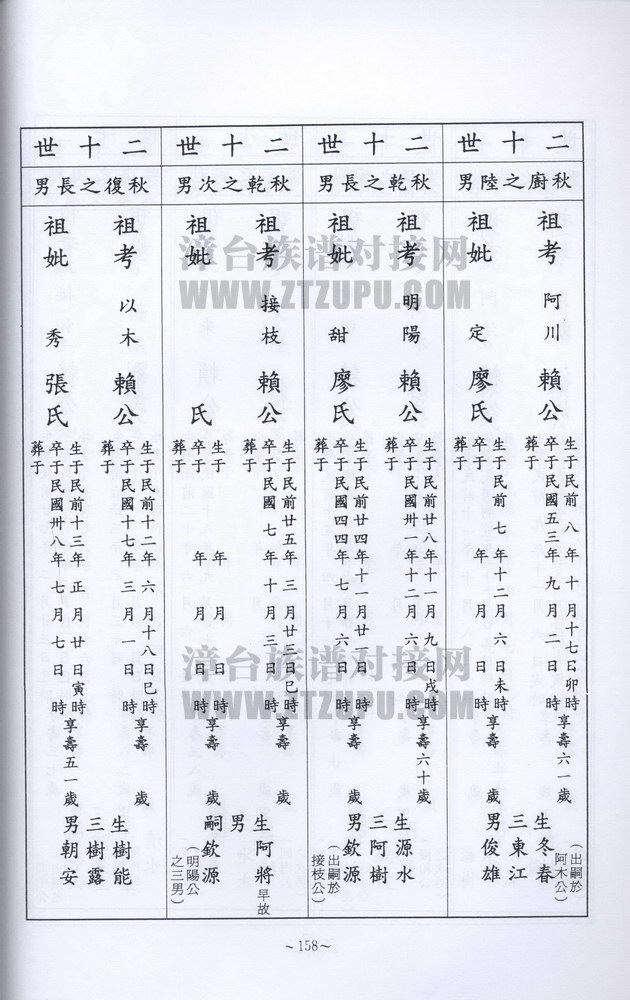 二十世
秋廚之陸男
祖考 阿川 賴公
生于民前八年十月十七日卯時享壽六一歲
卒于民國五三年九月二日
葬于
祖妣 定 廖氏
生于民前七年十二月六日未時享壽 歲
卒于 年 月 日
葬于
生三男
冬春(出嗣於阿木公)
東江
俊雄
二十世
秋乾之長男
祖考 明陽 賴公
生于民前廿八年十一月九日戌時享壽六十歲
卒于民國卅一年十二月六日 時
葬于
祖妣 甜 廖氏
生于民前廿四年十一月廿一日 時享壽 歲
卒于民國四四年七月六日 時
葬于
生三男
源水
阿樹
欽源(出嗣於接枝公)
二十世
秋乾之次男
祖考 接枝 賴公
生于民前廿五年三月廿三日巳時享壽 歲
卒于民國七年十月三日 時
葬于
祖妣 氏
生于 年 月 日 時享壽 歲
卒于 年 月 日 時
葬于
生男
阿將 早故
嗣欽源(明陽公之三男)
二十世
秋復之長男
祖考 以木 賴公
生于民前十二年六月十八日巳時享壽 歲
卒于民國十七年三月一日 時
葬于
祖妣 秀 張氏
生于民前十三年正月廿日寅時享壽五一歲
卒于民國卅八年七月七日 時
葬于
生三男
樹能
樹露
朝安
~158~
漳台族谱对接网
WWW.ZTZUPU.COM
漳台族谱对接网
WWW.ZTZUPU.COM